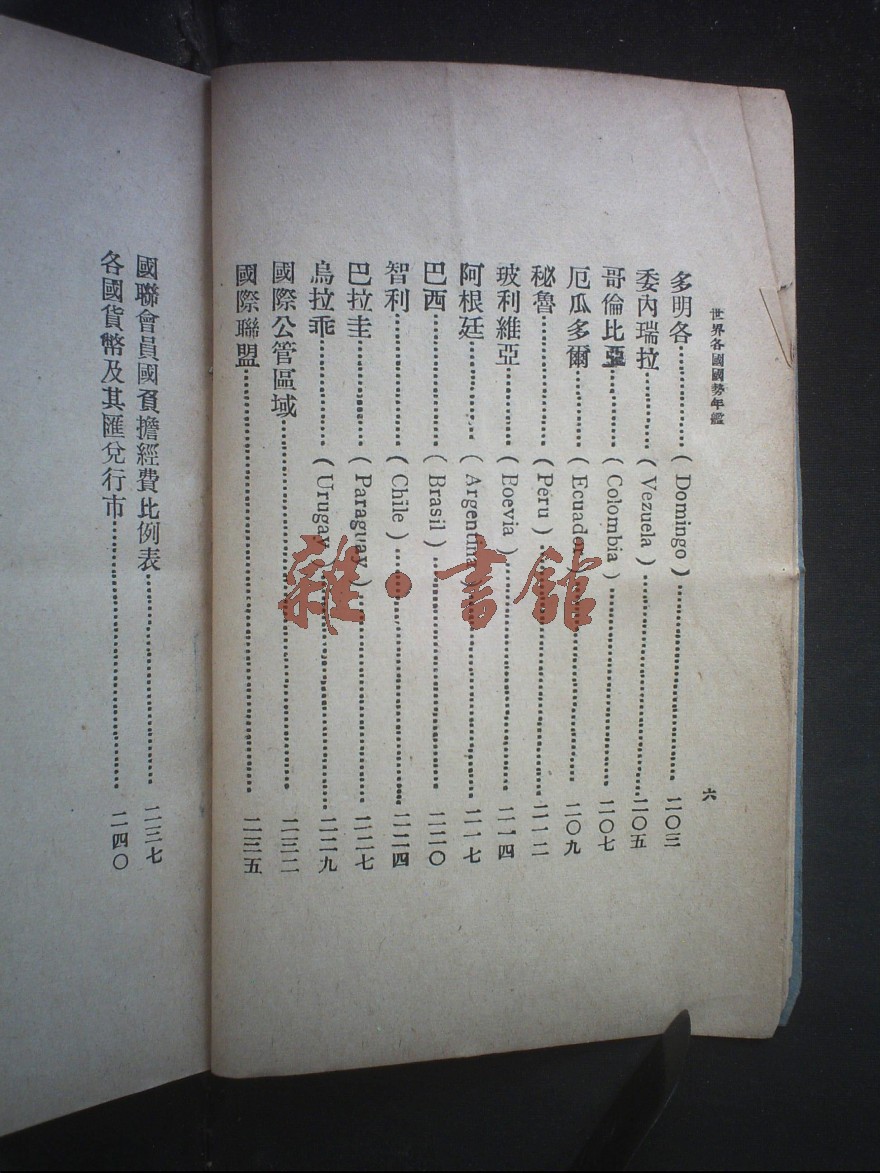 世界各國國勢年鑑
六
多明各………(Domingo)………二〇三
委內瑞拉………(Vezuela)………二〇五
哥倫比亞………(Colombia)………二〇七
厄瓜多爾………(Ecuador)………二〇九
秘魯………(Peru)………二一二
玻利維亞………(Boevia)………二一四
阿根廷………(Argentina)………二一七
巴西………(Brasil)………二二〇
智利………(Chile)………二二四
巴拉圭………(Paraguay)………二二七
烏拉乖………(Urugay)………二二九
國際公管區域………二三二
國際聯盟………二三五
國聯會員國負擔經費比例表………二三七
各國貨幣及其匯兌行市………二四〇
雜·書館